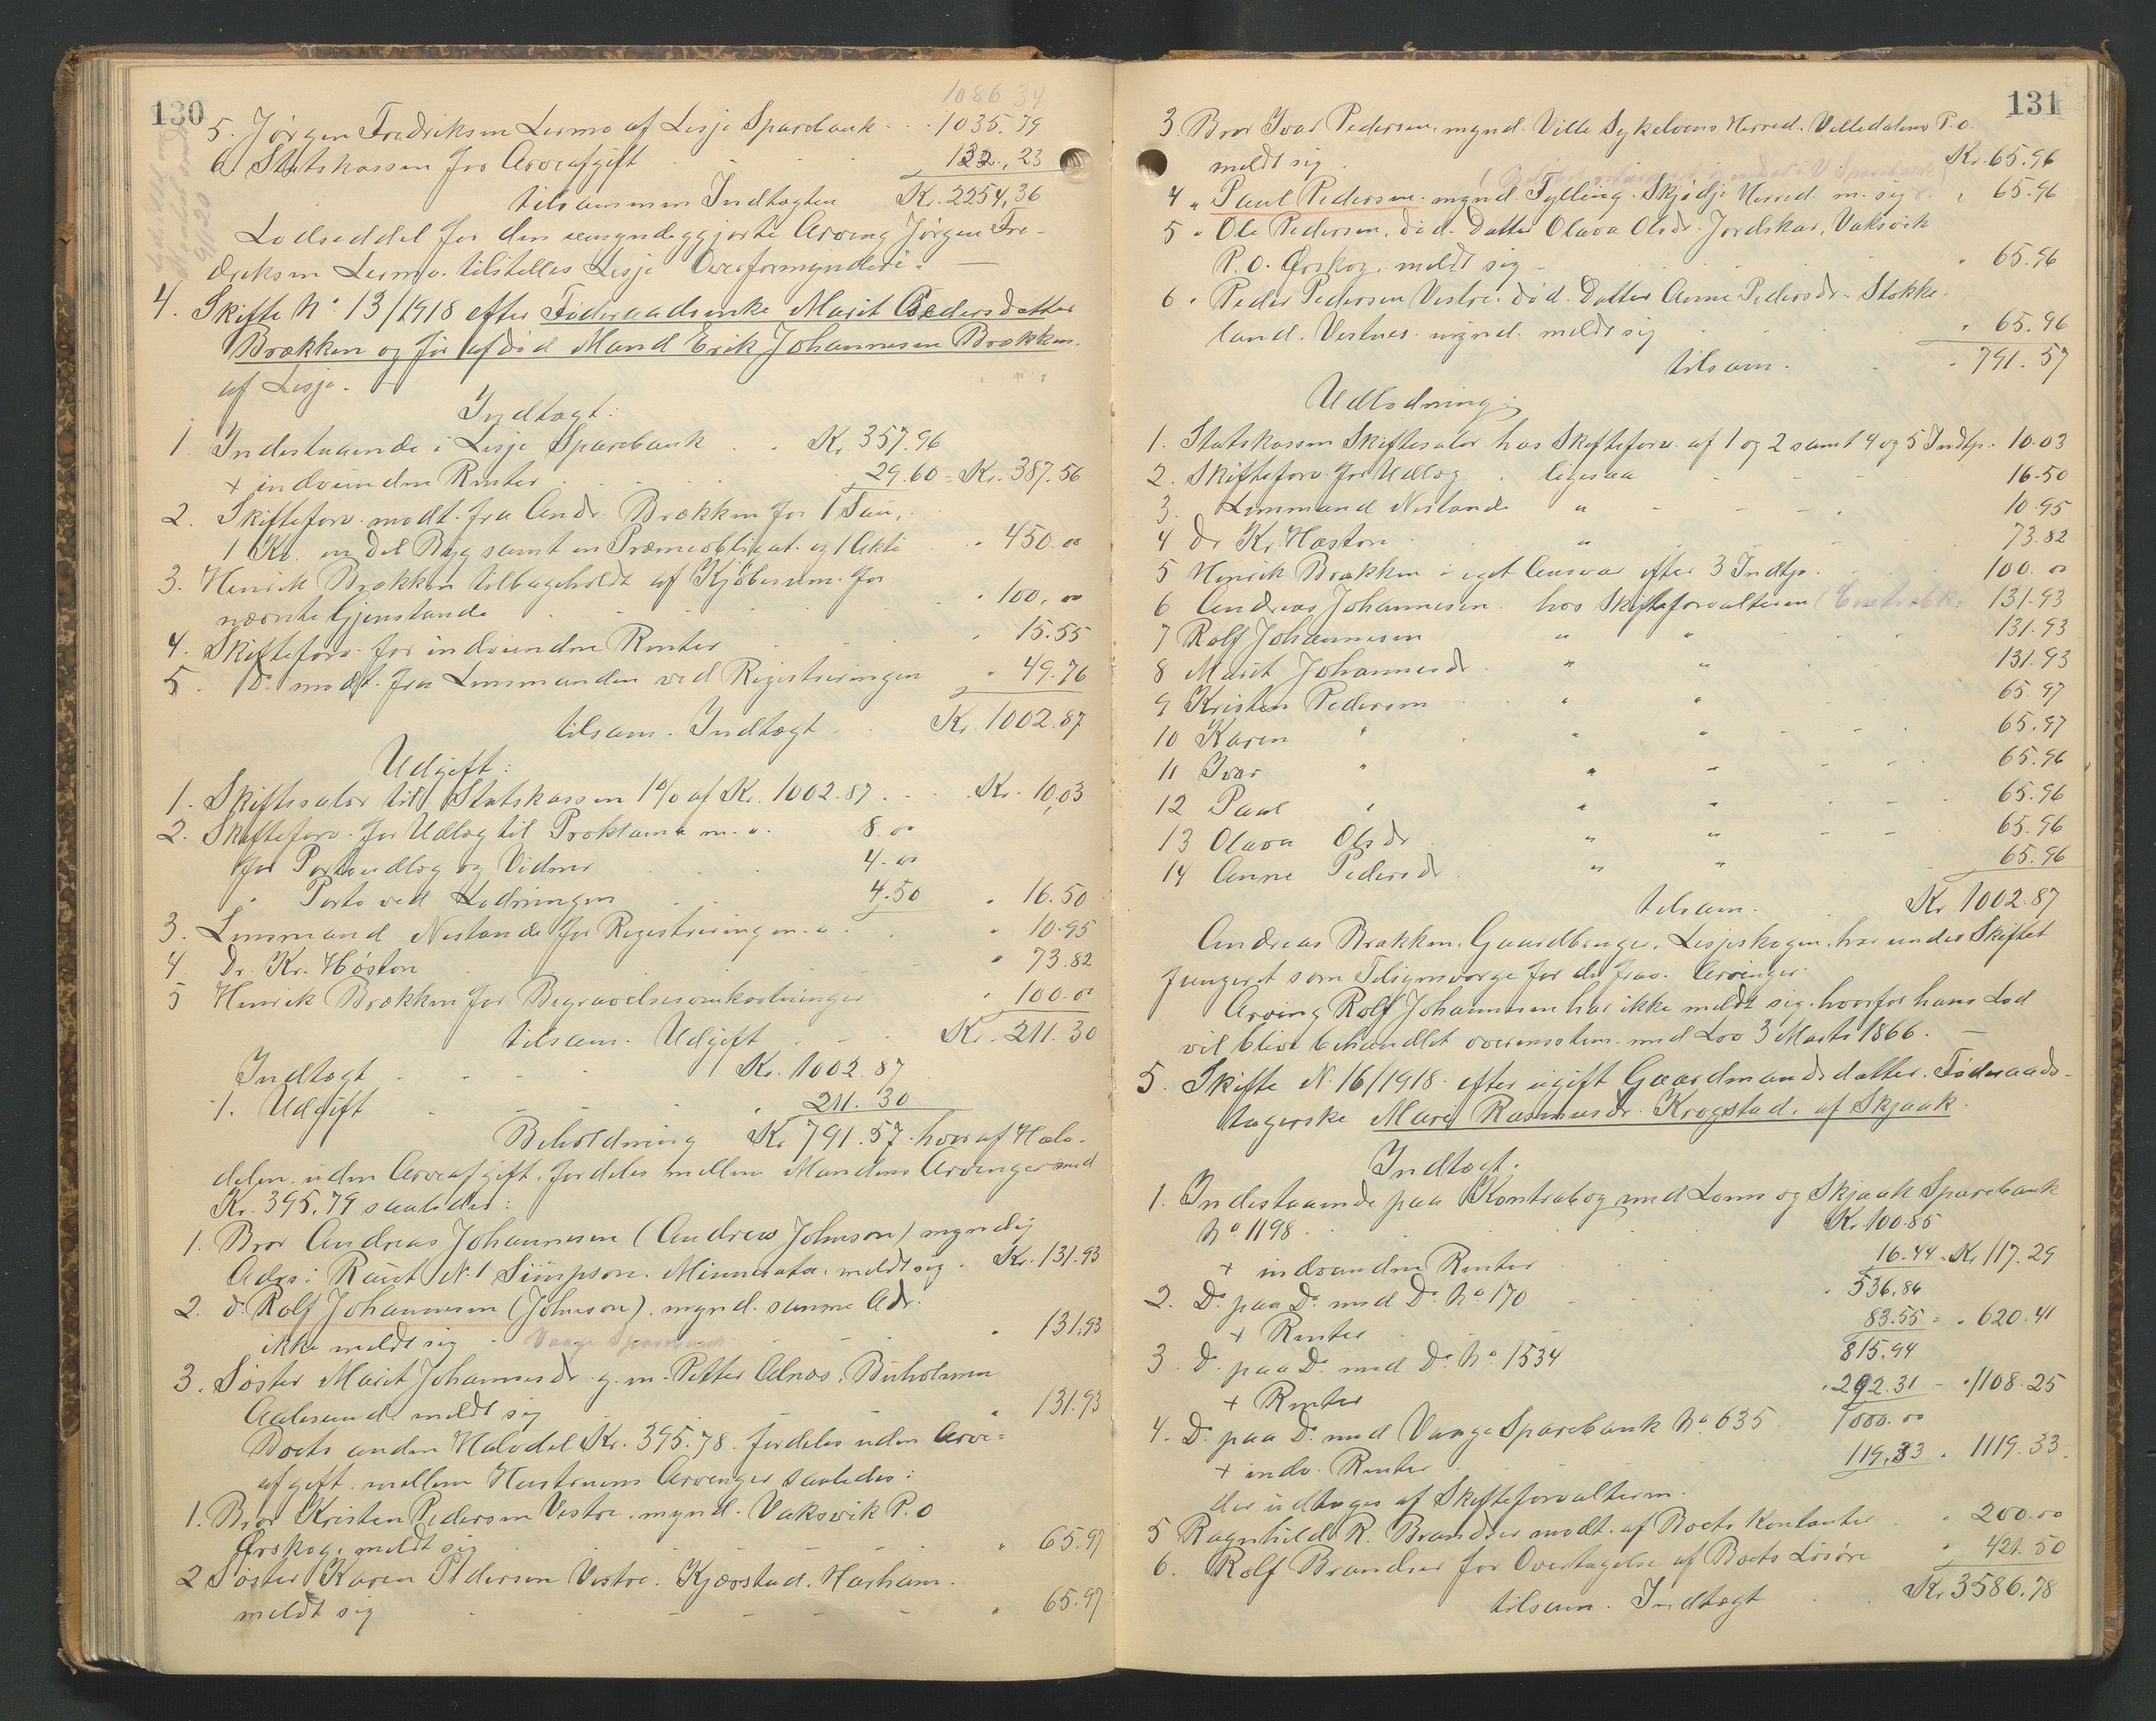 130
1086 34
5. Jørgen Fredriksen Lermo af Lesje Sparebank - - 1035.79
6 Statskassen for Arveafgift - - - 122,23
tilsammen Indtægten Kr. 2254,36
Lodseddel for den umyndiggjorte Arving Jørgen Fre-
driksen Lermo tilstilles Lesje Overformynderi. —
4. Skifte No 13/1918 efter Føderaadsenke Marit Pedersdatter
Brækken og før afdød Mand Erik Johannesen Brækken
af Lesje.
Indtægt:
1. Indestaaende i Lesje Sparebank . . Kr. 357.96
+ indvundne Renter . . . „ 29.60 = Kr. 387.56
2. Skifteforv. modt. fra Andr. Brækken for 1 Sau,
1 Kr. en Del Byg samt en Præmieobligat. og 1 Aktie „ 450.00
3. Henrik Brækken tilbageholdt af Kjøbesum. for
nævnte Gjenstande . . . „ 100,00
4. Skifteforv. for indvundne Renter . . „ 15.55
5. Do modt. fra Lensmanden ved Registreringen „ 49.76
tilsam. Indtægt . . Kr. 1002.87
Udgift:
1. Skiftesalær til Statskassen 1% af Kr. 1002.87 . . Kr. 10,03
2. Skifteforv. for Udlæg til Proklama m. v. 8.00
for Portoudlæg og Vidner . . . 4.00
„ Porto ved Lodningen . . 4.50 „ 16.50
3. Lensmand Nestande for Registrering m. v. . „ 10.95
4 Dr. Kr. Høston . . . - - „ 73.82
5 Henrik Brækken for Begravelsesomkostninger „ 100.00
tilsam. Udgift . - - Kr. 211.30
Indtægt - - - - Kr. 1002.87
÷ Udgift - - - - „ 211.30
Beholdning Kr. 791.57 hvoraf Halv-
delen uden Arveafgift fordeles mellem Mandens Arvinger med
Kr. 395.79 saaledes:
1. Bror Andreas Johannesen (Andrew Johnson) myndig
Adrs: Raut N. 1 Simpson. Minnesota. meldt sig . Kr. 131.93
2. do. Rolf Johannesen (Johnson). mynd. samme Adr.
ikke meldt sig - Vaage Sparebank - - „ 131,93
3. Søster Marit Johannesdr. g. m. Petter Alnæs, Buholmen
Aalesund. meldt sig - - - „ 131.93
Boets anden Halvdel Kr. 395.78 fordeles uden Arve-
afgift mellem Hustruens Arvinger saaledes:
1. Bror Kristen Pedersen Vestre. mynd. Vaksvik P.O
Ørskog. meldt sig . - - - „ 65.97
2 Søster Karen Pedersen Vestre. Kjærstad. Harham.
meldt sig - - - - - „ 65.97
131
3. Bror Ivar Pedersen, mynd. Ville Sykelvens Herred. Velledalens P.O.
meldt sig . Kr. 65.96
4 „ Paul Pedersen. mynd. Tylling. Skjødje Herred. m. sig . „ 65.96
5 „ Ole Pedersen, død. Datter Olava Olsdr. Jordskar, Vaksvik
P.O. Ørskog. meldt sig - . . „ 65.96
6 „ Peder Pedersen Vestre. død. Datter Anne Pedersdr. Stokke-
land. Vestnes. mynd. meldt sig . . . „ 65.96
tilsam. . „ 791.57
Udlodning:
1. Statskassen Skiftesalær hos Skifteforv. af 1 og 2 samt 4 og 5 Indtp. 10.03
2. Skifteforv. for Udlæg . ligesaa - - - 16.50
3. Lensmand Nestande „ - - - . 10.95
4 Dr Kr. Høston . „ . . 73.82
5 Henrik Brækken i eget Ansvar efter 3 Indtp. . . 100.00
6 Andreas Johannesen. hos Skifteforvalteren 131.93
7 Rolf Johannesen „ „ . . . 131.93
8 Marit Johannesdr. . „ „ . . 131.93
9 Kristen Pedersen . . „ „ . . 65.97
10 Karen „ . „ „ - - - 65.97
11 Ivar „ „ „ - - - 65.96
12 Paul „ „ „ - - - 65.96
13 Olava Olsdr . . „ „ - - 65.96
14 Anne Pedersdr . „ „ . . 65.96
tilsam. . Kr. 1002.87
Andreas Brækken, Gaardbruger, Lesjeskogen, har under Skiftet
fungeret som Tilsynsværge for de frav. Arvinger.
Arving Rolf Johannesen har ikke meldt sig, hvorfor hans Lod
vil blive behandlet overensstem. med Lov 3 Marts 1866. —
5. Skifte N. 16/1918 efter ugift Gaardmandsdatter, Føderaads-
tagerske Mari Rasmusdr. Krogstad, af Skjaak.
Indtægt.
1. Indestaaende paa Kontrabog med Loms og Skjaak Sparebank
No 1198 . . . Kr. 100.85
+ indvundne Renter . . 16.44 = Kr. 117.29
2. Do. paa Do. med Do. No 170 - - „ 536.86
+ Renter . . . 83.55 = „ 620.41
3. Do. paa Do. med Do. No 1534 815.94
+ Renter „ 292.31 - „ 1108.25
4. Do. paa Do. med Vaage Sparebank No. 635 . 1000.00
+ indv. Renter . . . 119,33 „ 1119.33
der udtages af Skifteforvalteren.
5 Ragnhild R. Brandser modt. af Boets Kontanter . „ 200.00
6. Rolf Brandser for Overtagelse af Boets Løsøre „ 421.50
tilsam. Indtægt . . Kr. 3586.78